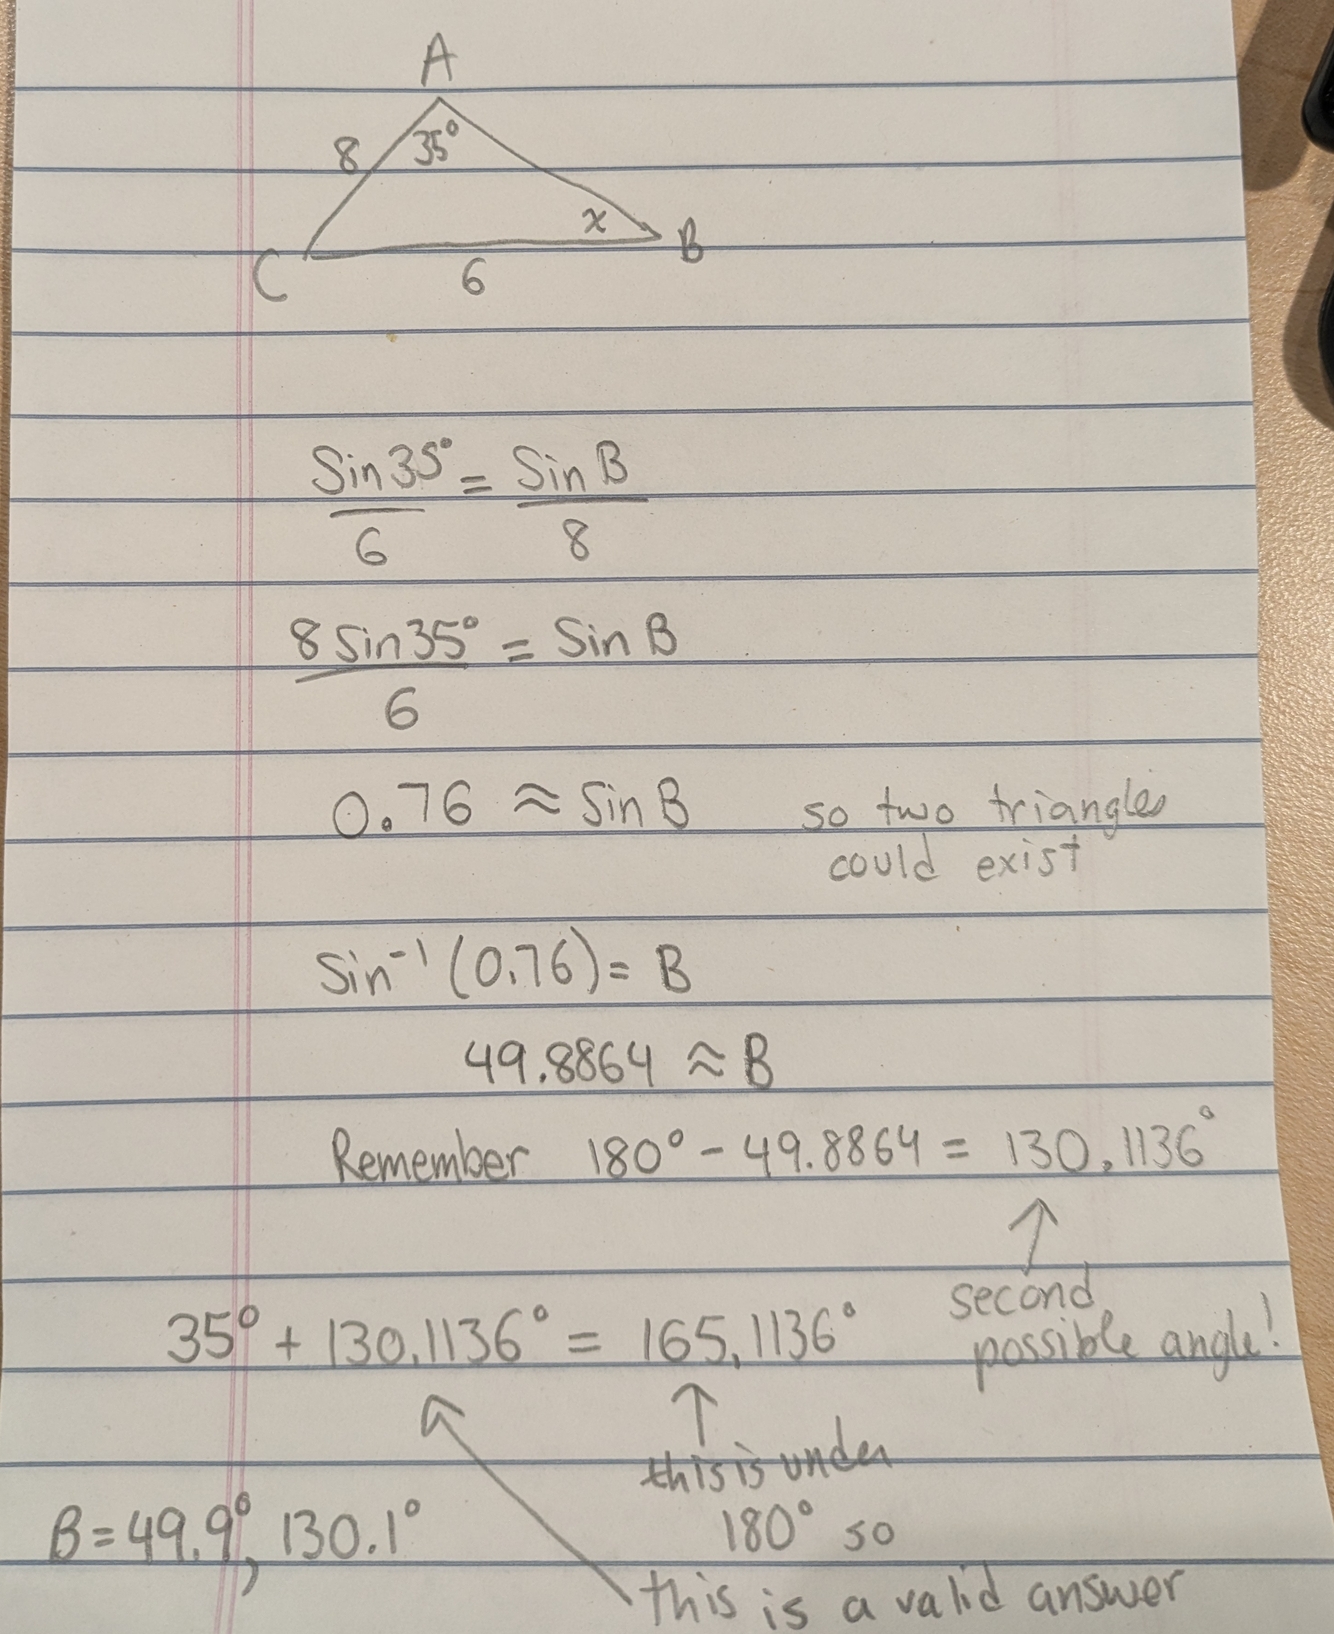 A
8 35°
x
C 6 B
Sin35° = Sin B
6 8
8 Sin35° = Sin B
6
0.76 ≈ Sin B so two triangles
could exist
Sin⁻¹(0.76) = B
49.8864 ≈ B
Remember 180° - 49.8864 = 130.1136°
second
possible angle!
35° + 130.1136° = 165.1136°
this is under
180° so
this is a valid answer
B = 49.9°, 130.1°